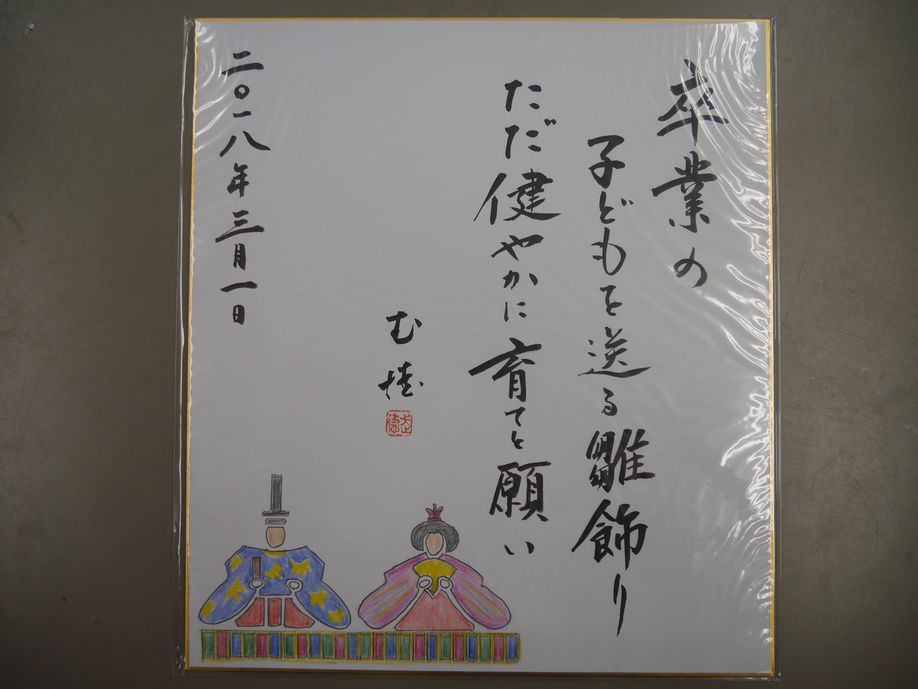 卒業の
子どもを送る雛飾り
ただ健やかに育てと願い
二〇一八年三月一日